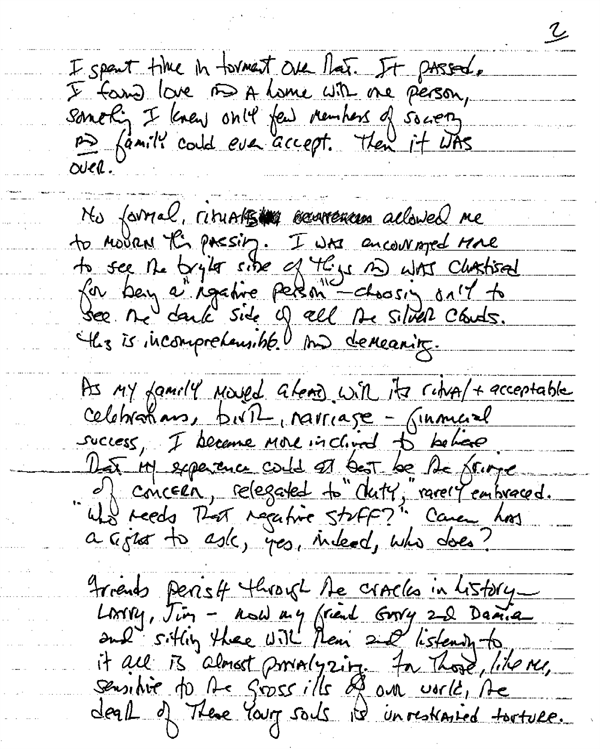 2
I spent time in torment over that. It passed.
I found love and a home with one person,
something I knew only few members of society
and family could ever accept. Then it was
over.
No formal, rituals allowed me
to mourn this passing. I was encouraged more
to see the bright side of things and was chastised
for being a "negative person" - choosing only to
see the dark side of all the silver clouds.
This is incomprehensible. And demeaning.
As my family moved ahead with its ritual + acceptable
celebrations, birth, marriage - financial
success, I became more inclined to believe
that my experience could at best be the fringe
of concern, relegated to "duty," rarely embraced.
"Who needs that negative stuff?" has
a right to ask, yes, indeed, who does?
Friends perish through the cracks in history -
Larry, Jim - now my friend Gary and
and sitting there with them and listening to
it all is almost paralyzing. For those, like me,
sensitive to the gross ills of our world, the
death of these young souls is unrestrained torture.